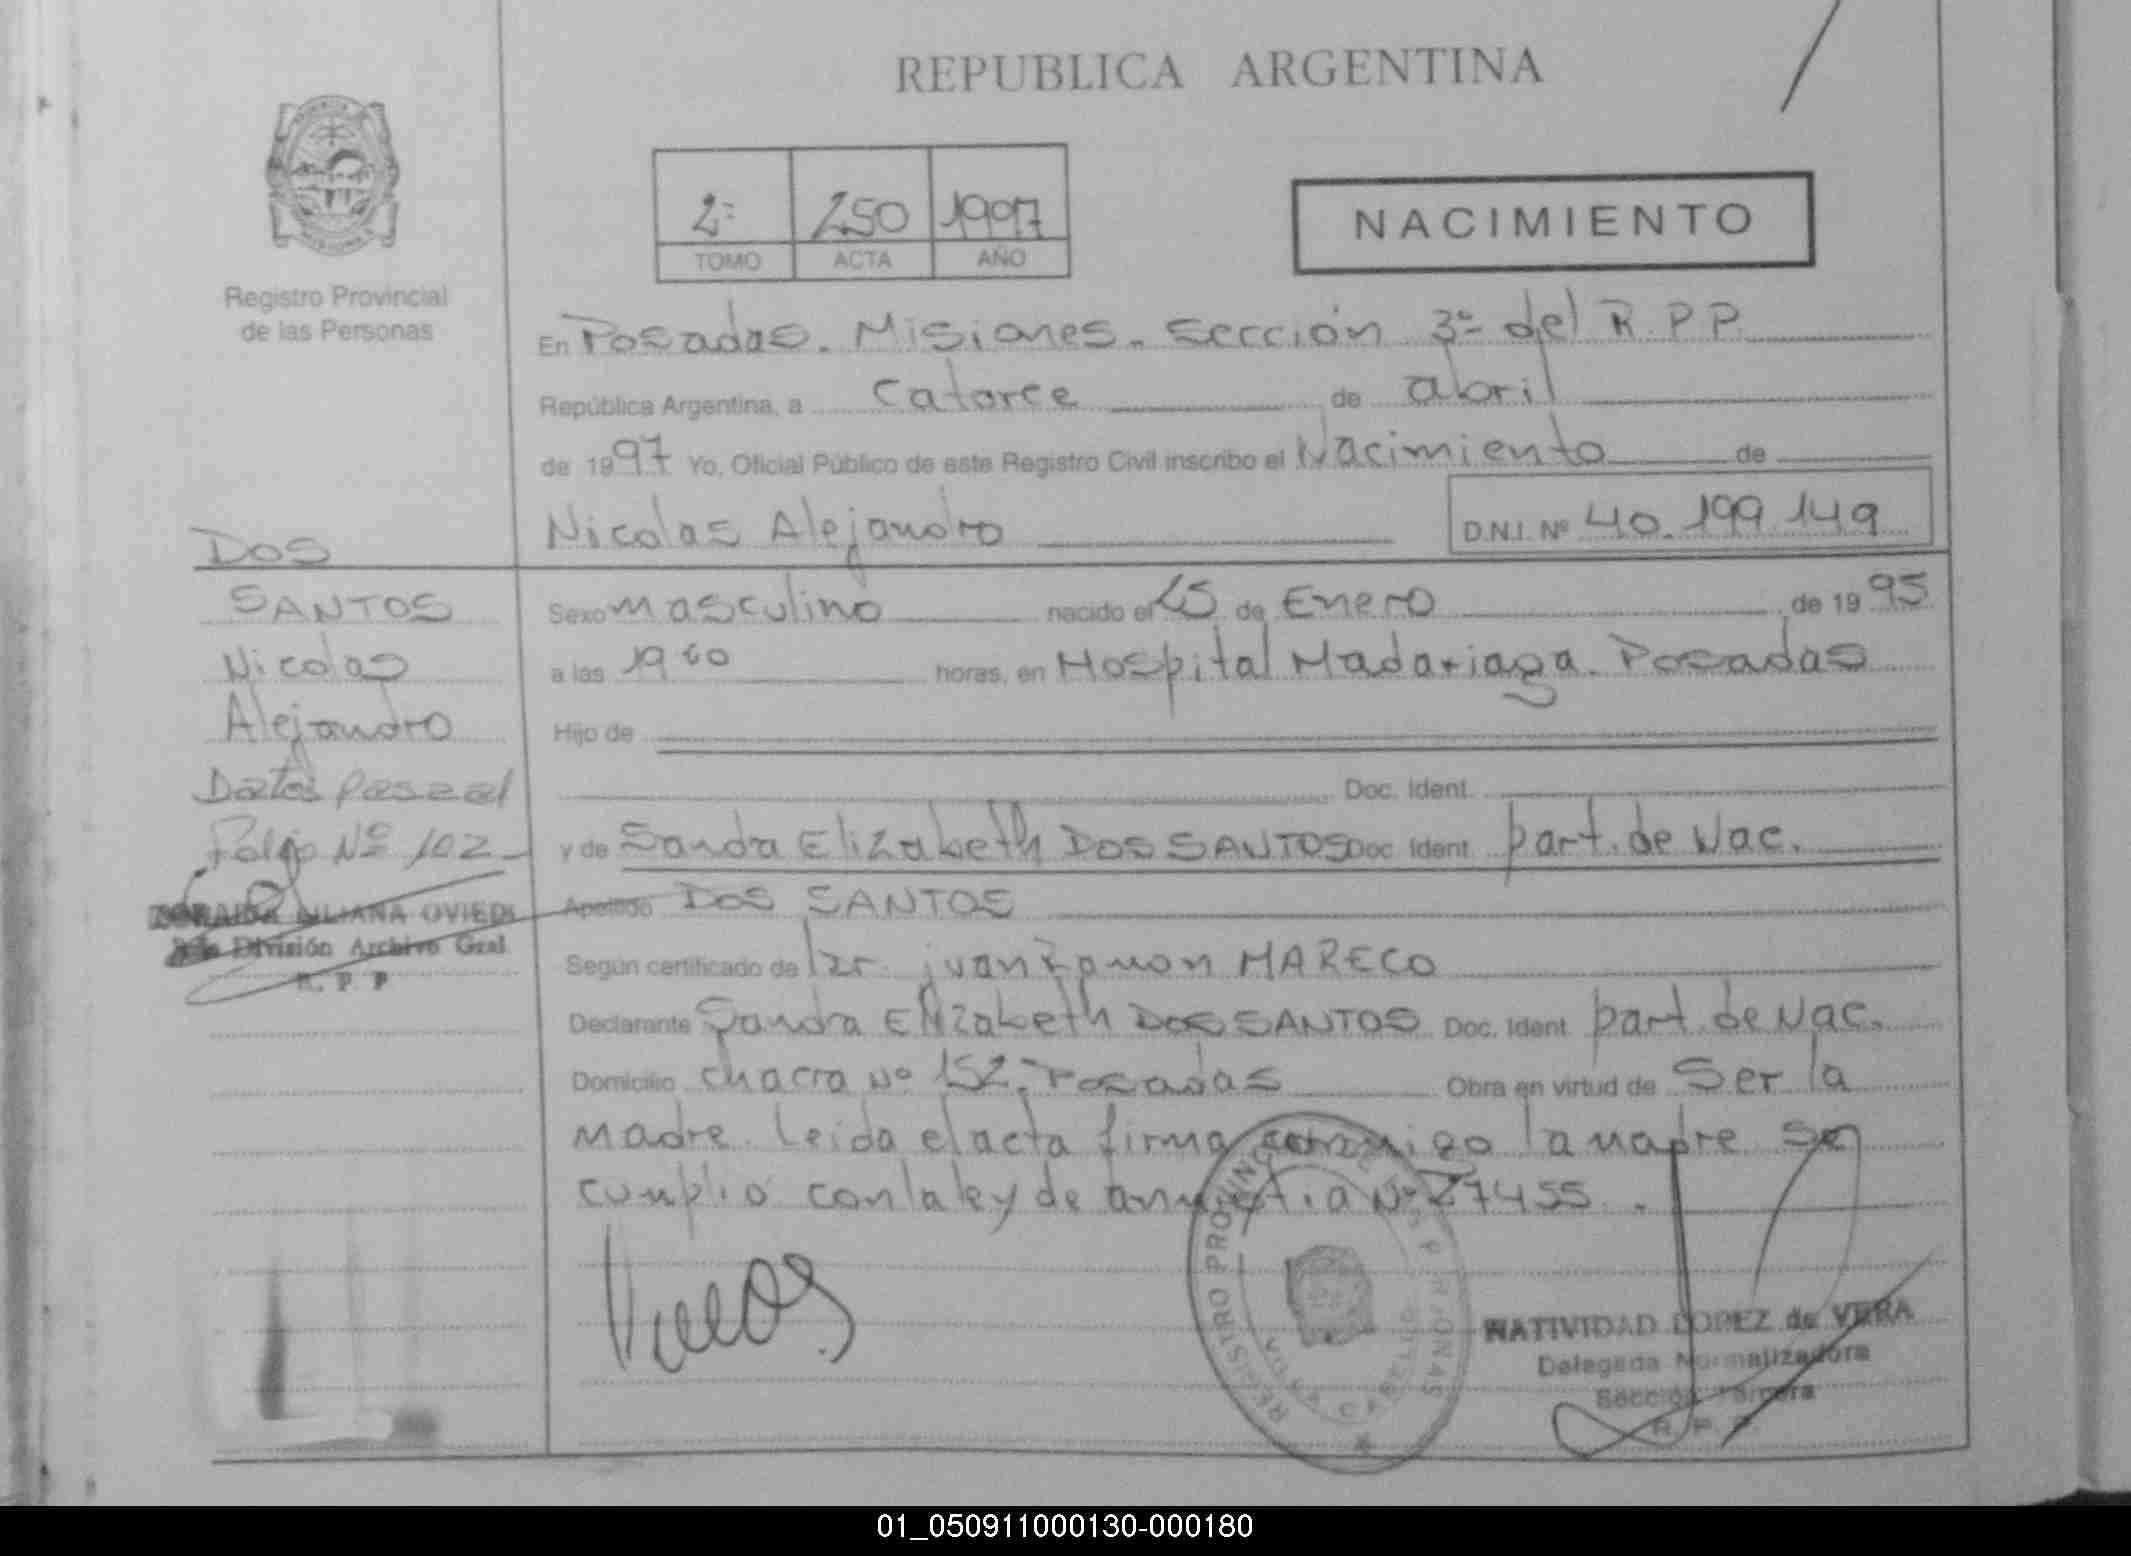 REPUBLICA ARGENTINA
2º 250 1997
TOMO ACTA AÑO
NACIMIENTO
Registro Provincial
de las Personas
En Posadas. Misiones. Sección 3º del R.P.P.
República Argentina, a Catorce de abril
de 1997 Yo, Oficial Público de este Registro Civil inscribo el Nacimiento de
Nicolas Alejandro D.N.I. Nº 40.199.149
DOS
SANTOS
Nicolas
Alejandro
Folio Nº 102
LILIANA OVIEDO
División Archivo Gral.
R. P. P
Sexo masculino nacido el 25 de Enero de 1995
a las horas, en Hospital Madariaga. Posadas
Hijo de
Doc. Ident.
y de Sandra Elizabeth DOS SANTOS Doc. Ident. part. de Nac.
Apellido DOS SANTOS
Según certificado de Dr. Juan Ramon MARECO
Declarante Sandra Elizabeth DOS SANTOS Doc. Ident. part. de Nac.
Domicilio chacra Nº 152. Posadas Obra en virtud de Ser la
madre. Leida el acta firma conmigo la madre se
cumplió con la ley de amnistia Nº
REGISTRO PROVINCIAL DE LAS PERSONAS
NATIVIDAD LOPEZ de VERA
Delegada Normalizadora
Sección Tercera
R. P. P.
01_050911000130-000180